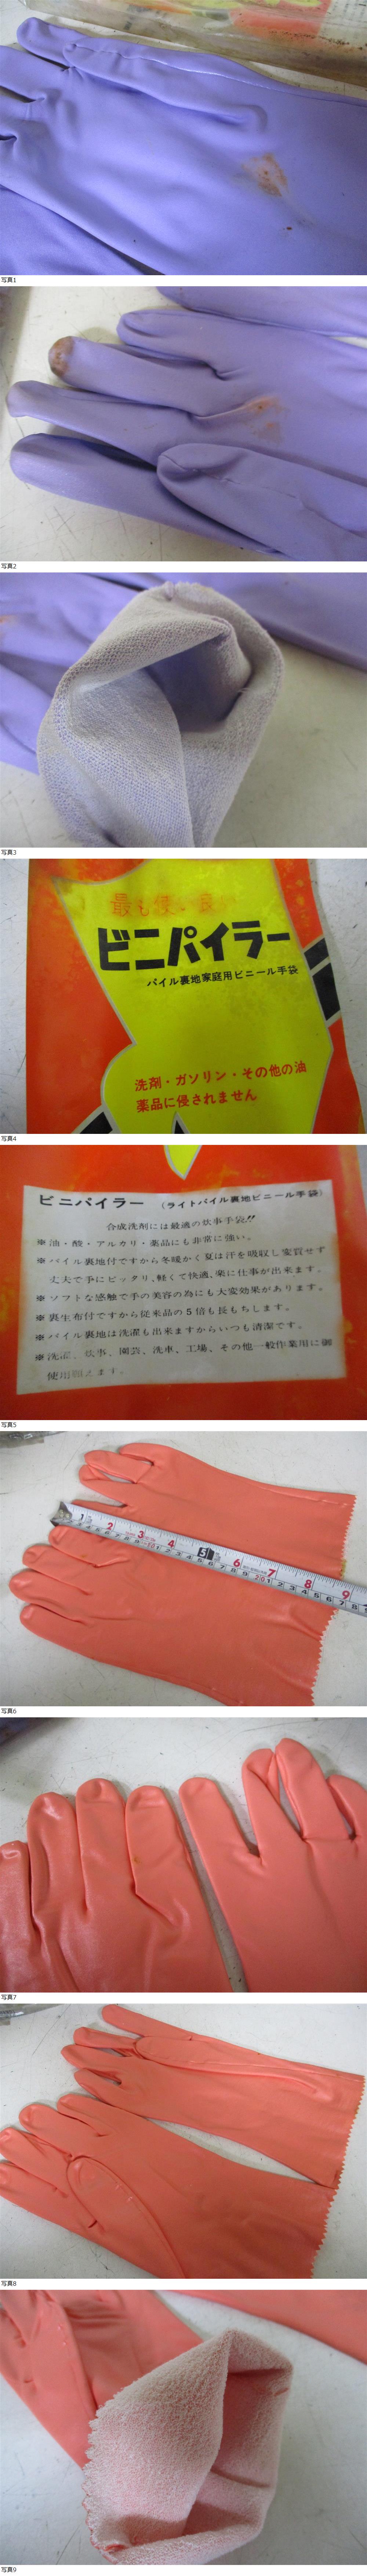 写真1
写真2
写真3
最も使い良い
ビニパイラー
パイル裏地家庭用ビニール手袋
洗剤・ガソリン・その他の油
薬品に侵されません
写真4
ビニパイラー (ライトパイル裏地ビニール手袋)
合成洗剤には最適の炊事手袋!!
※油・酸・アルカリ・薬品にも非常に強い。
※パイル裏地付ですから冬暖かく夏は汗を吸収し変質せず
丈夫で手にピッタリ、軽くて快適、楽に仕事が出来ます。
※ソフトな感触で手の美容の為にも大変効果があります。
※裏生布付ですから従来品の5倍も長もちします。
※パイル裏地は洗濯も出来ますからいつも清潔です。
※洗濯、炊事、園芸、洗車、工場、その他一般作業用に御
使用願えます。
写真5
1 2 3 4 5 6 7 8 9
写真6
写真7
写真8
写真9